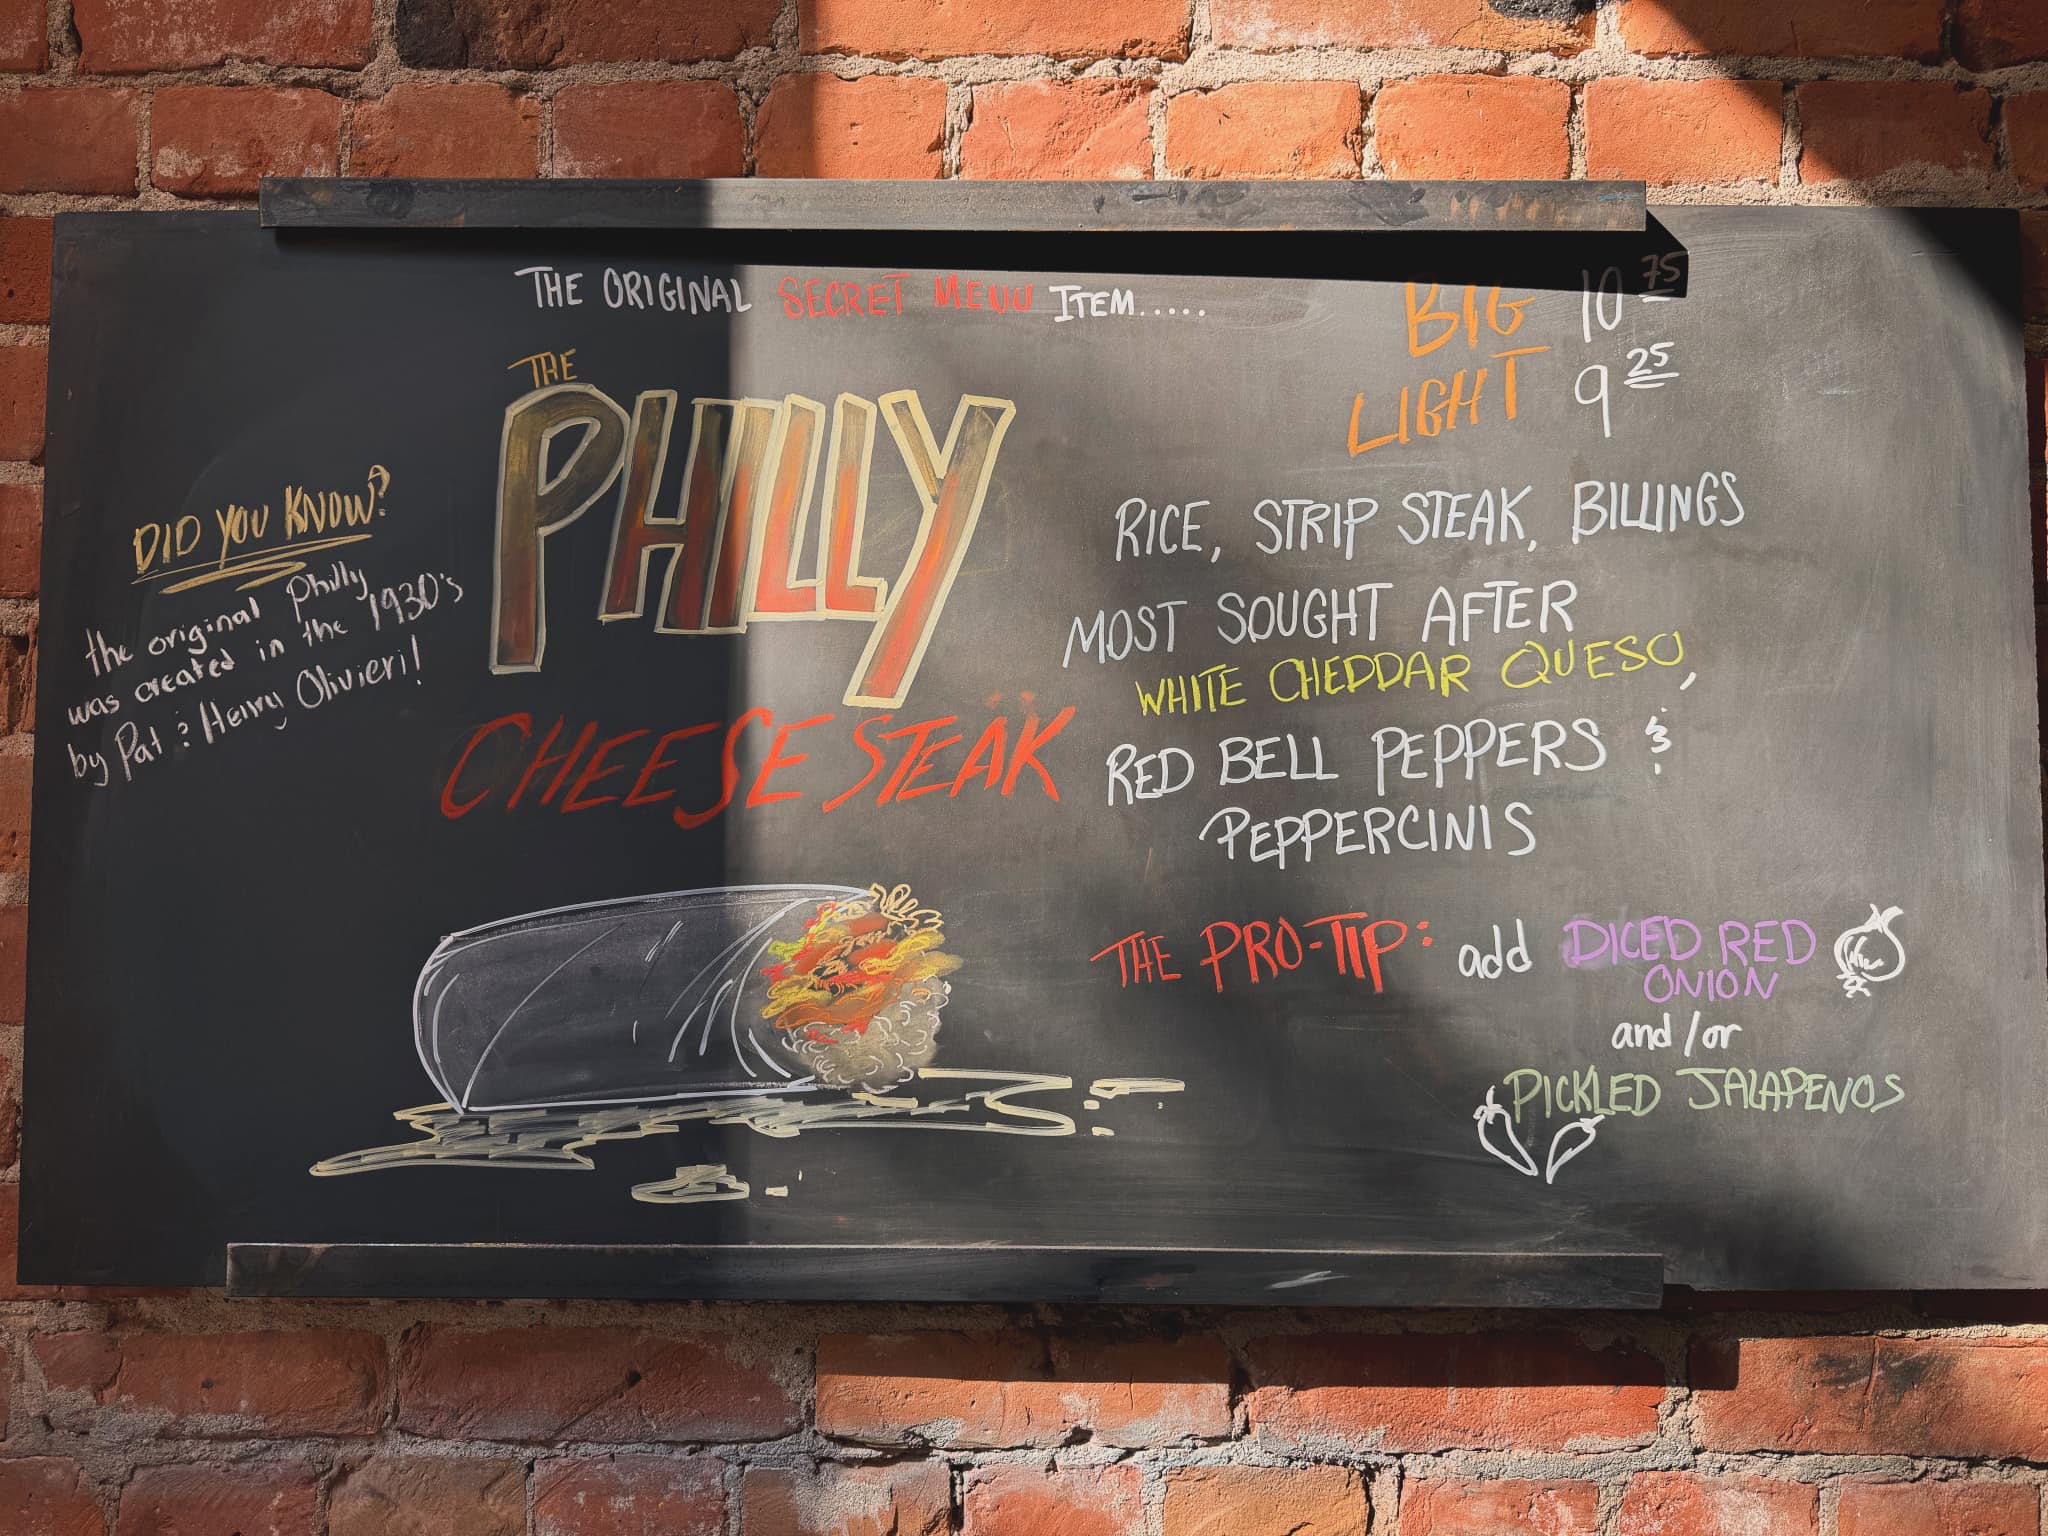 THE ORIGINAL SECRET MENU ITEM.....
THE
PHILLY
CHEESE STEAK
DID YOU KNOW?
the original Philly
was created in the 1930's
by Pat & Henry Olivieri!
BIG 10 75
LIGHT 9 25
RICE, STRIP STEAK, BILLINGS
MOST SOUGHT AFTER
WHITE CHEDDAR QUESO,
RED BELL PEPPERS &
PEPPERCINIS
THE PRO-TIP: add DICED RED
ONION
and/or
PICKLED JALAPENOS